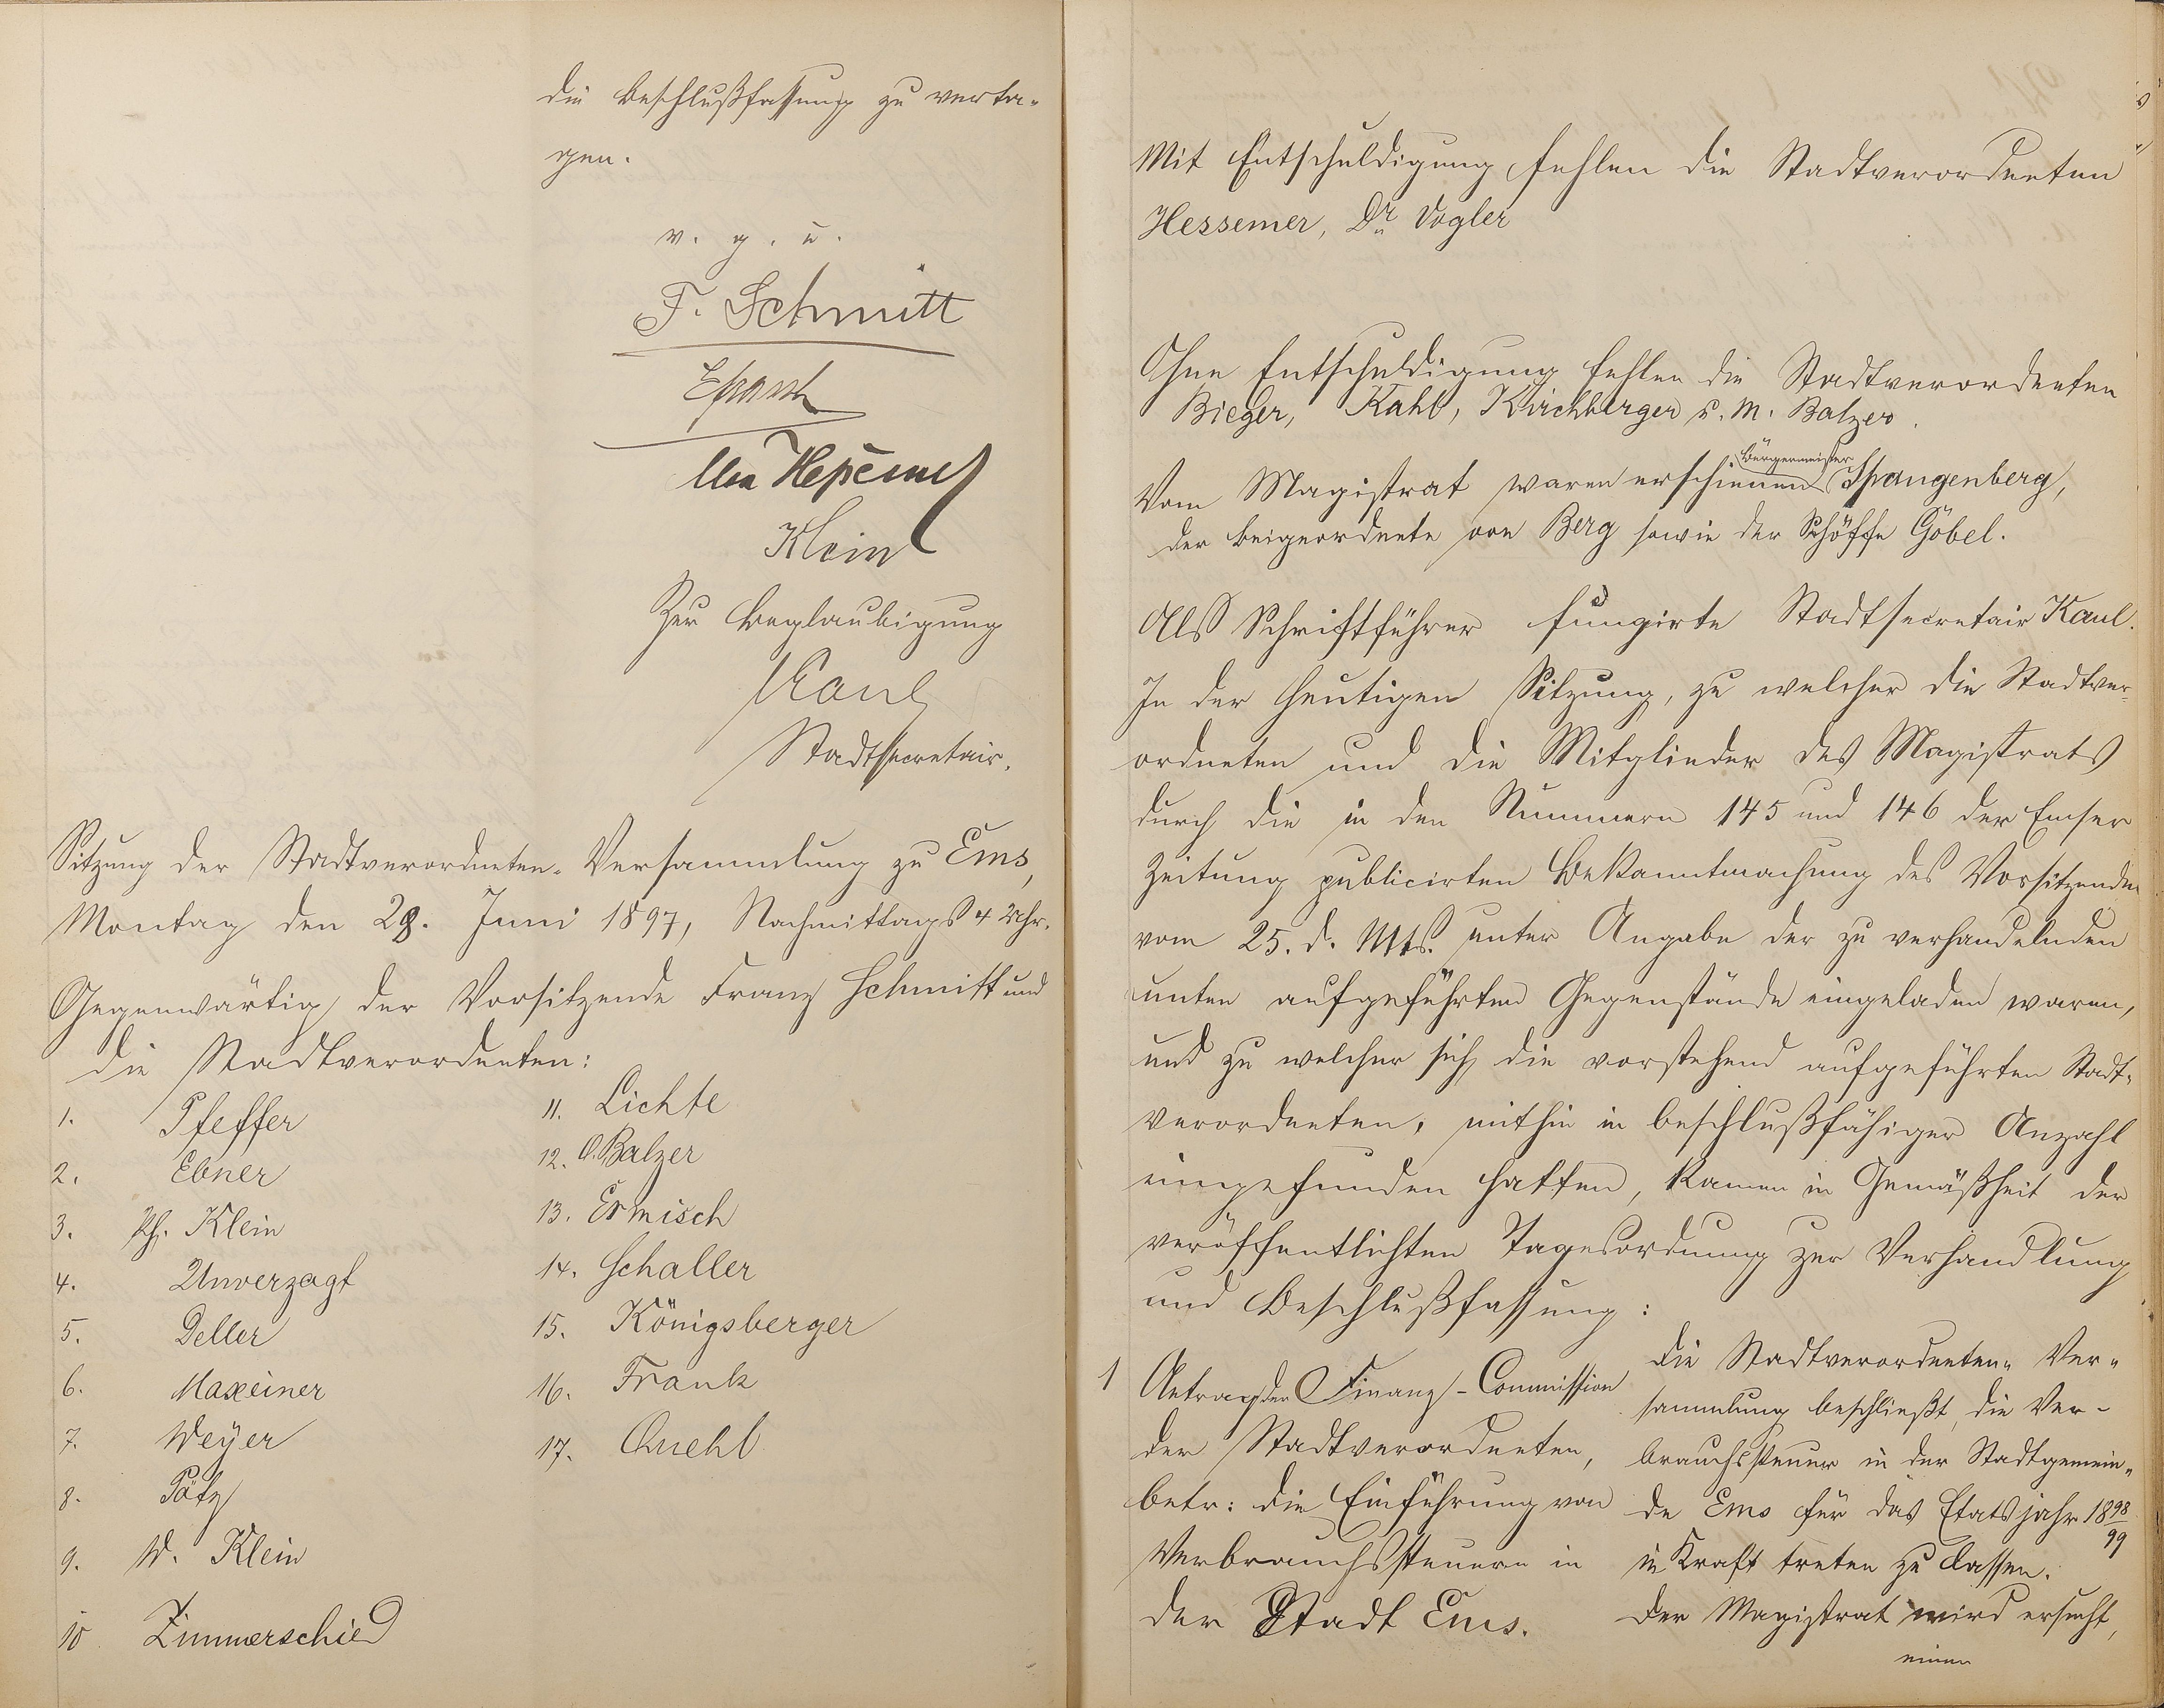 die Beschlußfassung zu verta-
gen.
v. g. u.
F. Schmitt
Klein
Zur Beglaubigung
Kaul
Stadtsecretair.
Sitzung der Stadtverordneten-Versammlung zu Ems,
Montag den 28. Juni 1897, Nachmittags 4 Uhr.
Gegenwärtig der Vorsitzende Franz Schmitt und
die Stadtverordneten:
1. Pfeffer
2. Ebner
3. Ph. Klein
4. Unverzagt
5. Deller
6. Maxeiner
7. Weyer
8. Pötz
9. W. Klein
10 Zimmerschied
11. Lichte
12. O. Balzer
13. Ermisch
14. Schaller
15. Königsberger
16. Frank
17. Quehl
Mit Entschuldigung fehlen die Stadtverordneten
Hessemer, Dr. Vogler
Ohne Entschuldigung fehlen die Stadtverordneten
Bieger, Kahl, Kirchberger u. M. Balzer.
Bürgermeister
Vom Magistrat waren erschienen Spangenberg,
der Beigeordnete von Berg sowie der Schöffe Göbel.
Als Schriftführer fungirte Stadtsecretair Kaul.
In der heutigen Sitzung, zu welcher die Stadtver-
ordneten und die Mitglieder des Magistrats
durch die in den Nummern 145 und 146 der Emser
Zeitung publicirten Bekanntmachung des Vorsitzenden
vom 25. d. Mts. unter Angabe der zu verhandelnden
unten aufgeführten Gegenstände eingeladen waren,
und zu welcher sich die vorstehend aufgeführten Stadt-
verordneten, mithin in beschlußfähiger Anzahl
eingefunden hatten, kamen in Gemäßheit der
veröffentlichten Tagesordnung zur Verhandlung
und Beschlußfassung:
1 Antrag der Finanz-Commission
der Stadtverordneten,
betr: die Einführung von
Verbrauchssteuern in
der Stadt Ems.
Die Stadtverordneten-Ver-
sammlung beschließt, die Ver-
brauchssteuer in der Stadtgemein-
de Ems für das Etatsjahr 1898/99
in Kraft treten zu lassen.
Der Magistrat wird ersucht,
einen